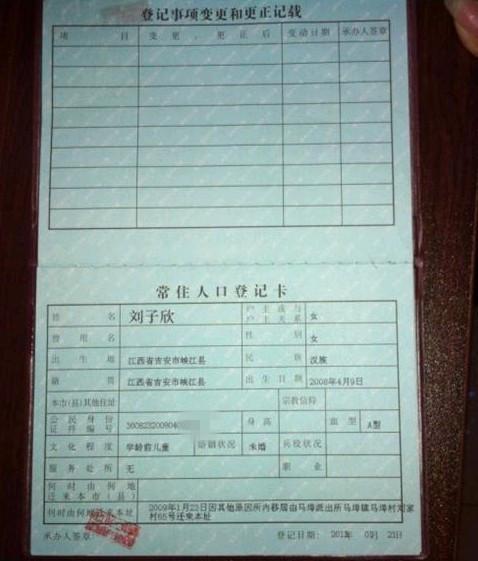 登记事项变更和更正记载
项 目 变更、更正后 变动日期 承办人签章
常住人口登记卡
姓 名 刘子欣 户主或与户主关系 女
曾用名 性别 女
出生地 江西省吉安市峡江县 民族 汉族
籍贯 江西省吉安市峡江县 出生日期 2008年4月9日
本市(县)其他住址 宗教信仰
公民身份证件编号 360823200804 身高 血型 A型
文化程度 学龄前儿童 婚姻状况 未婚 兵役状况
服务处所 无 职业
何时由何地迁来本市(县)
何时由何地迁来本址 2009年1月23日因其他原因所内移居由马埠派出所马埠镇马埠村刘家村65号迁来本址
承办人签章: 登记日期: 年 月 23日